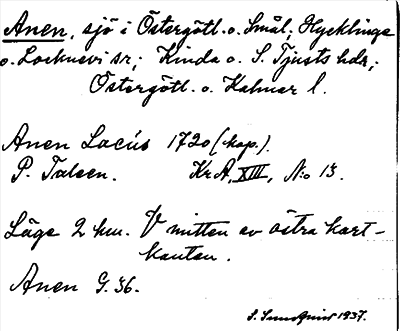 Anen, sjö i Östergötl. o. Smål; Hycklinge
o. Locknevi sr; Kinda o. S. Tjusts hdr;
Östergötl. o. Kalmar l.
Anen Lacus 1720 (kop.).
P. Taleen. KrA, XIII, N:o 13.
Läge 2 km. V mitten av östra kart-
kanten.
Anen G. 36.
S. Sundqvist 1937.